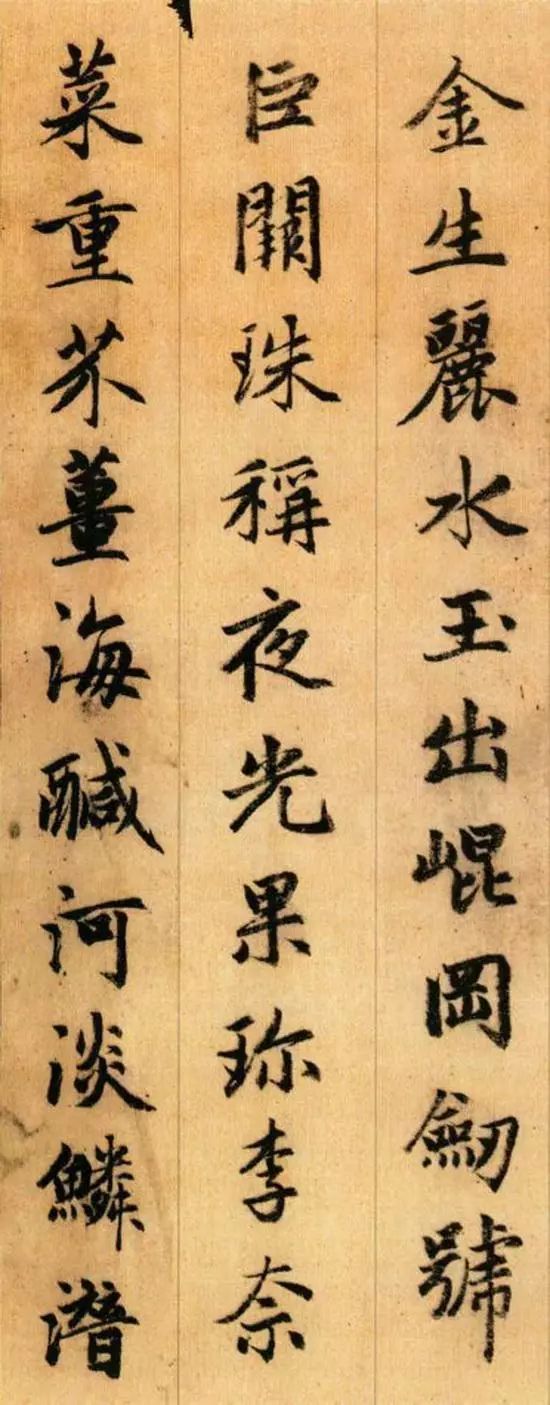 金生麗水玉出崐岡劔號
巨闕珠稱夜光果珎李柰
菜重芥薑海醎河淡鱗潛